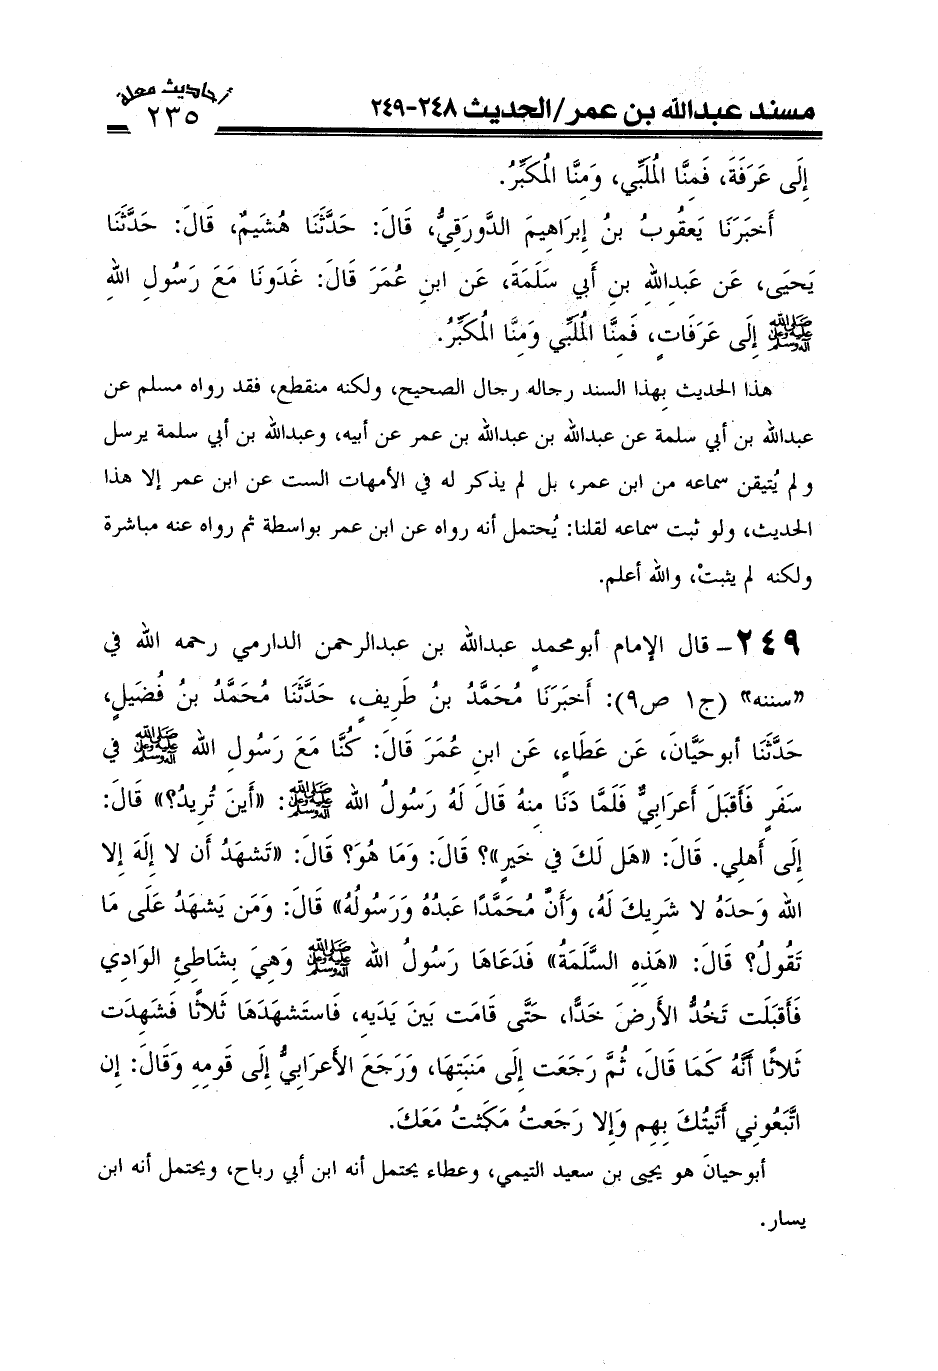 مسند عبدالله بن عمر/الحديث ٢٤٨-٢٤٩
أحاديث معلة
٢٣٥
إِلَى عَرَفَةَ، فَمِنَّا الْمُلَبِّي، وَمِنَّا الْمُكَبِّرُ.
أَخبَرَنَا يَعقُوبُ بنُ إِبرَاهِيمَ الدَّورَقِيُّ، قَالَ: حَدَّثَنَا هُشَيمٌ، قَالَ: حَدَّثَنَا
يَحيَى، عَن عَبدِاللهِ بنِ أَبِي سَلَمَةَ، عَن ابنِ عُمَرَ قَالَ: غَدَونَا مَعَ رَسُولِ اللهِ
ﷺ إِلَى عَرَفَاتٍ، فَمِنَّا الْمُلَبِّي وَمِنَّا الْمُكَبِّرُ.
هذا الحديث بهذا السند رجاله رجال الصحيح، ولكنه منقطع، فقد رواه مسلم عن
عبدالله بن أبي سلمة عن عبدالله بن عبدالله بن عمر عن أبيه، وعبدالله بن أبي سلمة يرسل
ولم يُتيقن سماعه من ابن عمر، بل لم يذكر له في الأمهات الست عن ابن عمر إلا هذا
الحديث، ولو ثبت سماعه لقلنا: يُحتمل أنه رواه عن ابن عمر بواسطة ثم رواه عنه مباشرة
ولكنه لم يثبتْ، والله أعلم.
٢٤٩- قال الإمام أبومحمدٍ عبدالله بن عبدالرحمن الدارمي رحمه الله في
«سننه» (ج١ ص٩): أَخبَرَنَا مُحَمَّدُ بنُ طَرِيفٍ، حَدَّثَنَا مُحَمَّدُ بنُ فُضَيلٍ،
حَدَّثَنَا أبوحَيَّانَ، عَن عَطَاءٍ، عَن ابنِ عُمَرَ قَالَ: كُنَّا مَعَ رَسُولِ اللهِ ﷺ في
سَفَرٍ فَأَقبَلَ أَعرَابِيٌّ فَلَمَّا دَنَا مِنهُ قَالَ لَهُ رَسُولُ اللهِ ﷺ: «أَينَ تُرِيدُ؟» قَالَ:
إِلَى أَهلِي. قَالَ: «هَل لَكَ فِي خَيرٍ»؟ قَالَ: وَمَا هُوَ؟ قَالَ: «تَشهَدُ أَن لا إِلَهَ إِلا
اللهُ وَحدَهُ لا شَرِيكَ لَهُ، وَأَنَّ مُحَمَّدًا عَبدُهُ وَرَسُولُهُ» قَالَ: وَمَن يَشهَدُ عَلَى مَا
تَقُولُ؟ قَالَ: «هَذِهِ السَّلَمَةُ» فَدَعَاهَا رَسُولُ اللهِ ﷺ وَهِيَ بِشَاطِئِ الوَادِي
فَأَقبَلَت تَخُدُّ الأَرضَ خَدًّا، حَتَّى قَامَت بَينَ يَدَيهِ، فَاستَشهَدَهَا ثَلاثًا فَشَهِدَت
ثَلاثًا أَنَّهُ كَمَا قَالَ، ثُمَّ رَجَعَت إِلَى مَنبَتِهَا، وَرَجَعَ الأَعرَابِيُّ إِلَى قَومِهِ وَقَالَ: إِن
اتَّبَعُونِي أَتَيتُكَ بِهِم وَإِلا رَجَعتُ مَكَثتُ مَعَكَ.
أبوحيانَ هو يحيى بن سعيد التيمي، وعطاء يحتمل أنه ابن أبي رباح، ويحتمل أنه ابن
يسار.